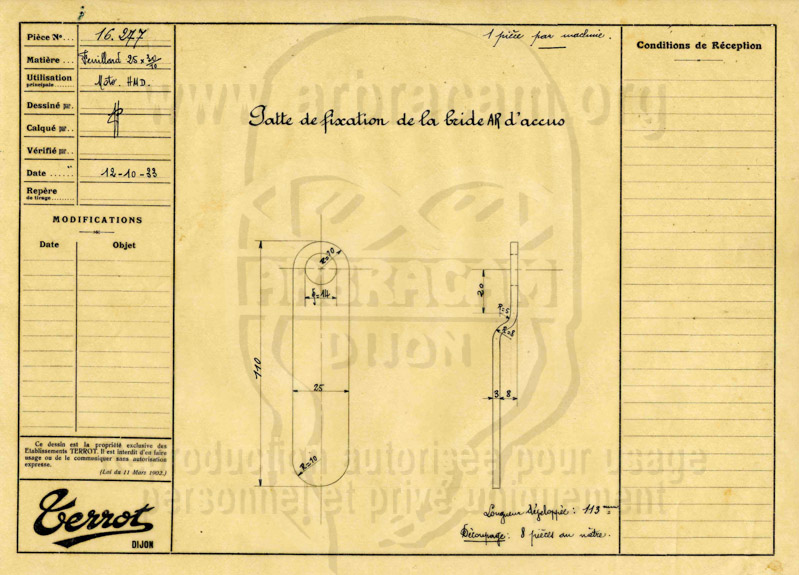 Pièce Nº... 16.277
Matière... Feuillard 25 x 30/10
Utilisation
principale....... Moto. HMD.
Dessiné par.
Calqué par..
Vérifié par..
Date ...... 12-10-33
Repère
de tirage.........
MODIFICATIONS
Date Objet
Ce dessin est la propriété exclusive des
Etablissements TERROT. Il est interdit d'en faire
usage ou de le communiquer sans autorisation
expresse.
(Loi du 11 Mars 1902.)
Terrot
DIJON
1 pièce par machine.
Patte de fixation de la bride AR d'accus
R=10
14
110
25
R=10
20
R=5
R=8
3 8
Longueur développée: 113 mm
Découpage: 8 pièces au mètre.
Conditions de Réception
www.arbracam.org
ARBRACAM
DIJON
production autorisée pour usage
personnel et privé uniquement